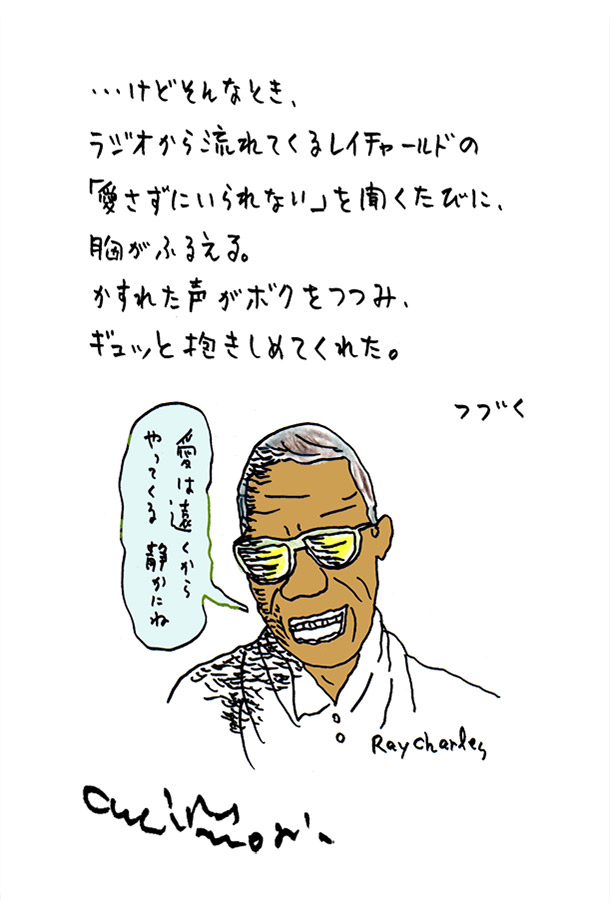 …けどそんなとき、
ラジオから流れてくるレイチャールドの
「愛さずにいられない」を聞くたびに、
胸がふるえる。
かすれた声がボクをつつみ、
ギュッと抱きしめてくれた。
つづく
愛は遠くから
やってくる 静かにね
Ray Charles